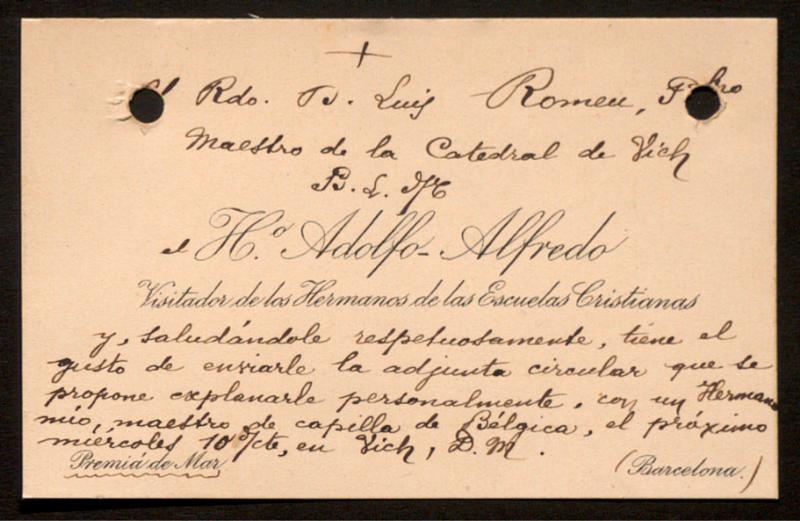 +
Al Rdo. D. Luis Romeu, Pbro
Maestro de la Catedral de Vich
B. L. M.
el H.º Adolfo-Alfredo
Visitador de los Hermanos de las Escuelas Cristianas
y, saludándole respetuosamente, tiene el
gusto de enviarle la adjunta circular que se
propone explanarle personalmente, con un Hermano
mío, maestro de capilla de Bélgica, el próximo
miércoles 10 cte, en Vich, D. M.
Premiá de Mar
(Barcelona.)